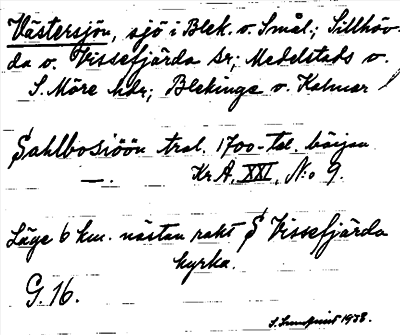 Västersjön, sjö i Blek. o. Smål.; Sillhöv-
da o. Vissefjärda sr; Medelstads o.
S. Möre hdr; Blekinge o. Kalmar l.
Sahlbosiöön tral. 1700-tal. början
—. Kr A. XXI, N:o 9.
Läge 6 km. nästan rakt S Vissefjärda
kyrka.
G. 16.
S. Lundquist 1938.